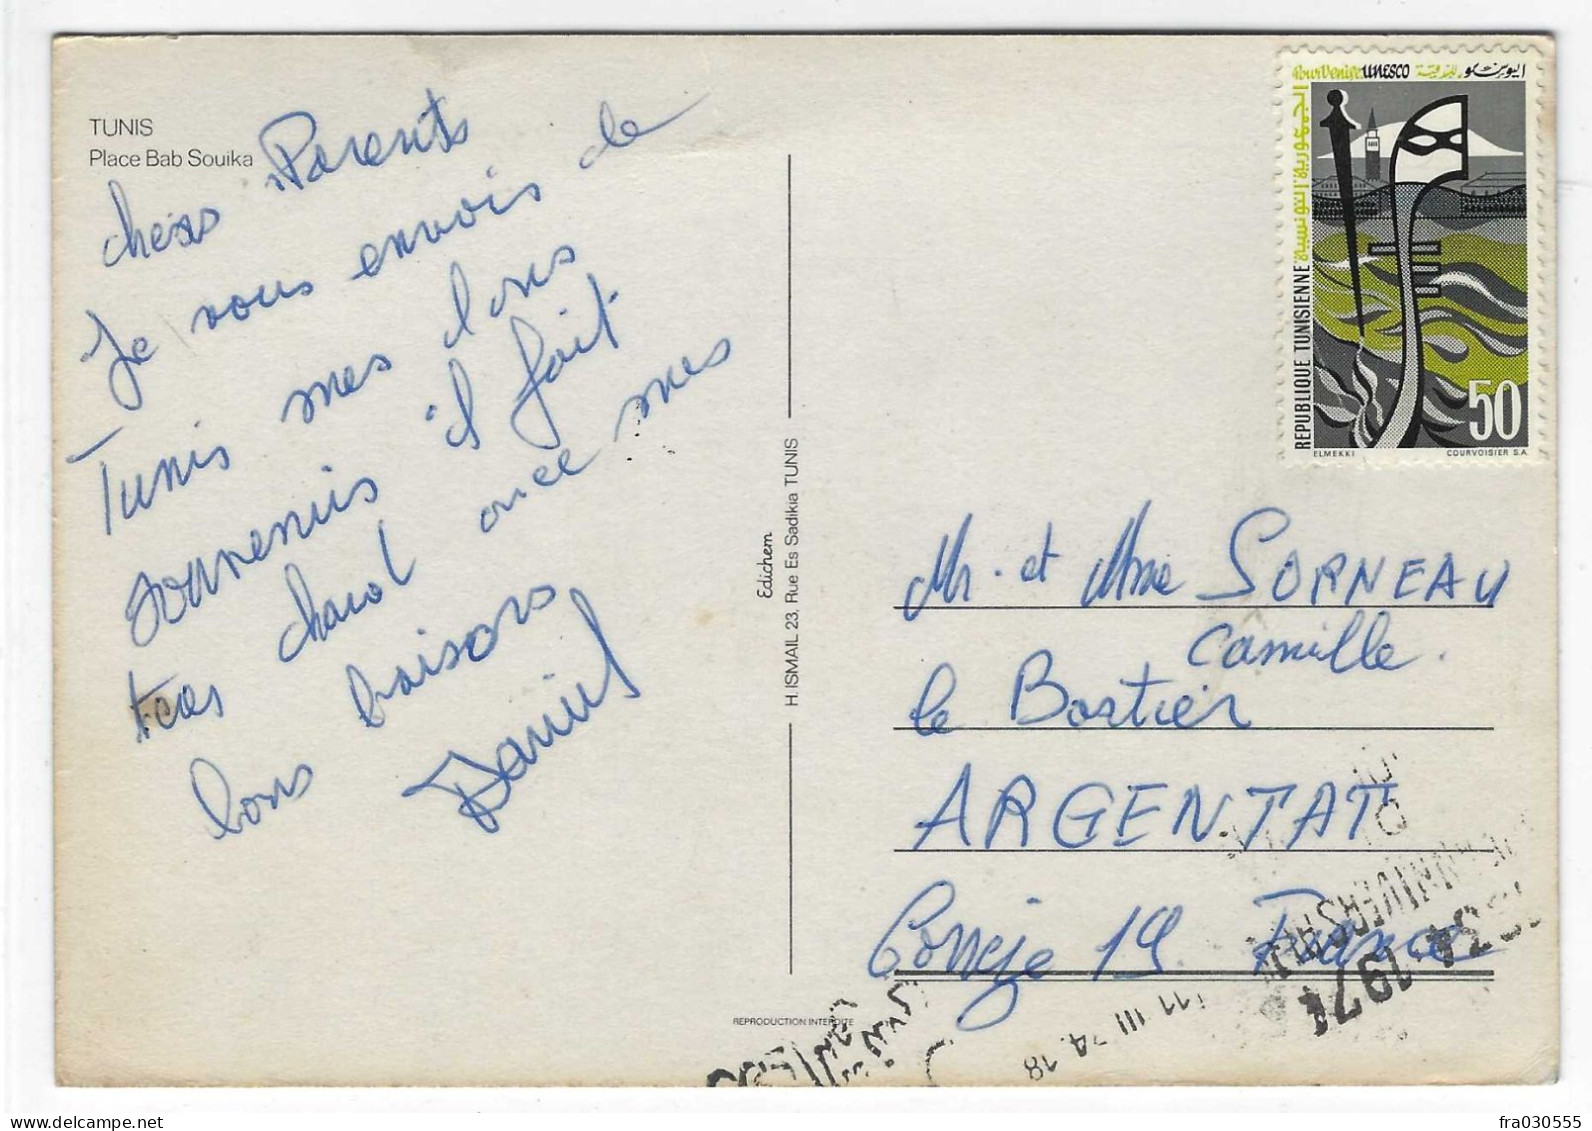 TUNIS
Place Bab Souika
chers Parents
Je vous envois de
Tunis mes bons
souvenirs il fait
tres chaud avec mes
bons baisors
Daniel
Edichem
H. ISMAIL 23, Rue Es Sadikia TUNIS
REPRODUCTION INTERDITE
Pour Venise UNESCO اليونسكو للبندقية
الجمهورية التونسية
REPUBLIQUE TUNISIENNE
50
ELMEKKI COURVOISIER S.A
Mr. et Mme SORNEAU
Camille.
le Bastier
ARGENTAT
Correje 19 France
ANNIVERSAIRE
1934.1974
11 III 74.18
fra030555